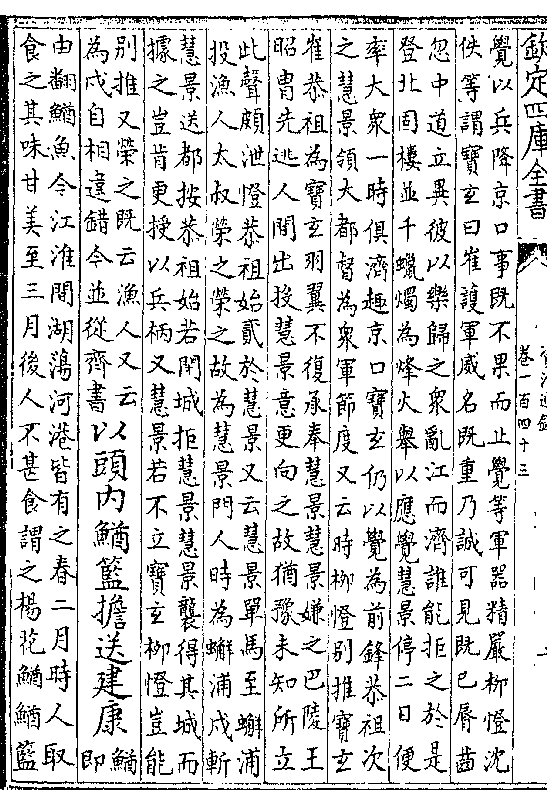 欽定四庫全書
資治通鑑
卷一百四十三
覺以兵降京口事既不果而止覺等軍器精嚴柳憕沈
佚等謂寶玄曰崔護軍威名既重乃誠可見既已脣齒
忽中道立異彼以樂歸之衆亂江而濟誰能拒之於是
登北固樓並千蠟燭為烽火舉以應覺慧景停二日便
率大衆一時俱濟趣京口寶玄仍以覺為前鋒恭祖次
之慧景領大都督為衆軍節度又云時柳憕別推寶玄
崔恭祖為寶玄羽翼不復承奉慧景慧景嫌之巴陵王
昭胄先逃人間出投慧景意更向之故猶豫未知所立
此聲頗泄憕恭祖始貳於慧景又云慧景單馬至蠏浦
投漁人太叔榮之榮之故為慧景門人時為蠏浦戍斬
慧景送都按恭祖始若閉城拒慧景慧景襲得其城而
據之豈肯更授以兵柄又慧景若不立寶玄柳憕豈能
別推又榮之既云漁人又云
為戍自相違錯今並從齊書
以頭内鰌籃擔送建康
鰌
即
由翻鰌魚今江淮間湖蕩河港皆有之春二月時人取
食之其味甘美至三月後人不甚食謂之楊花鰌鰌籃